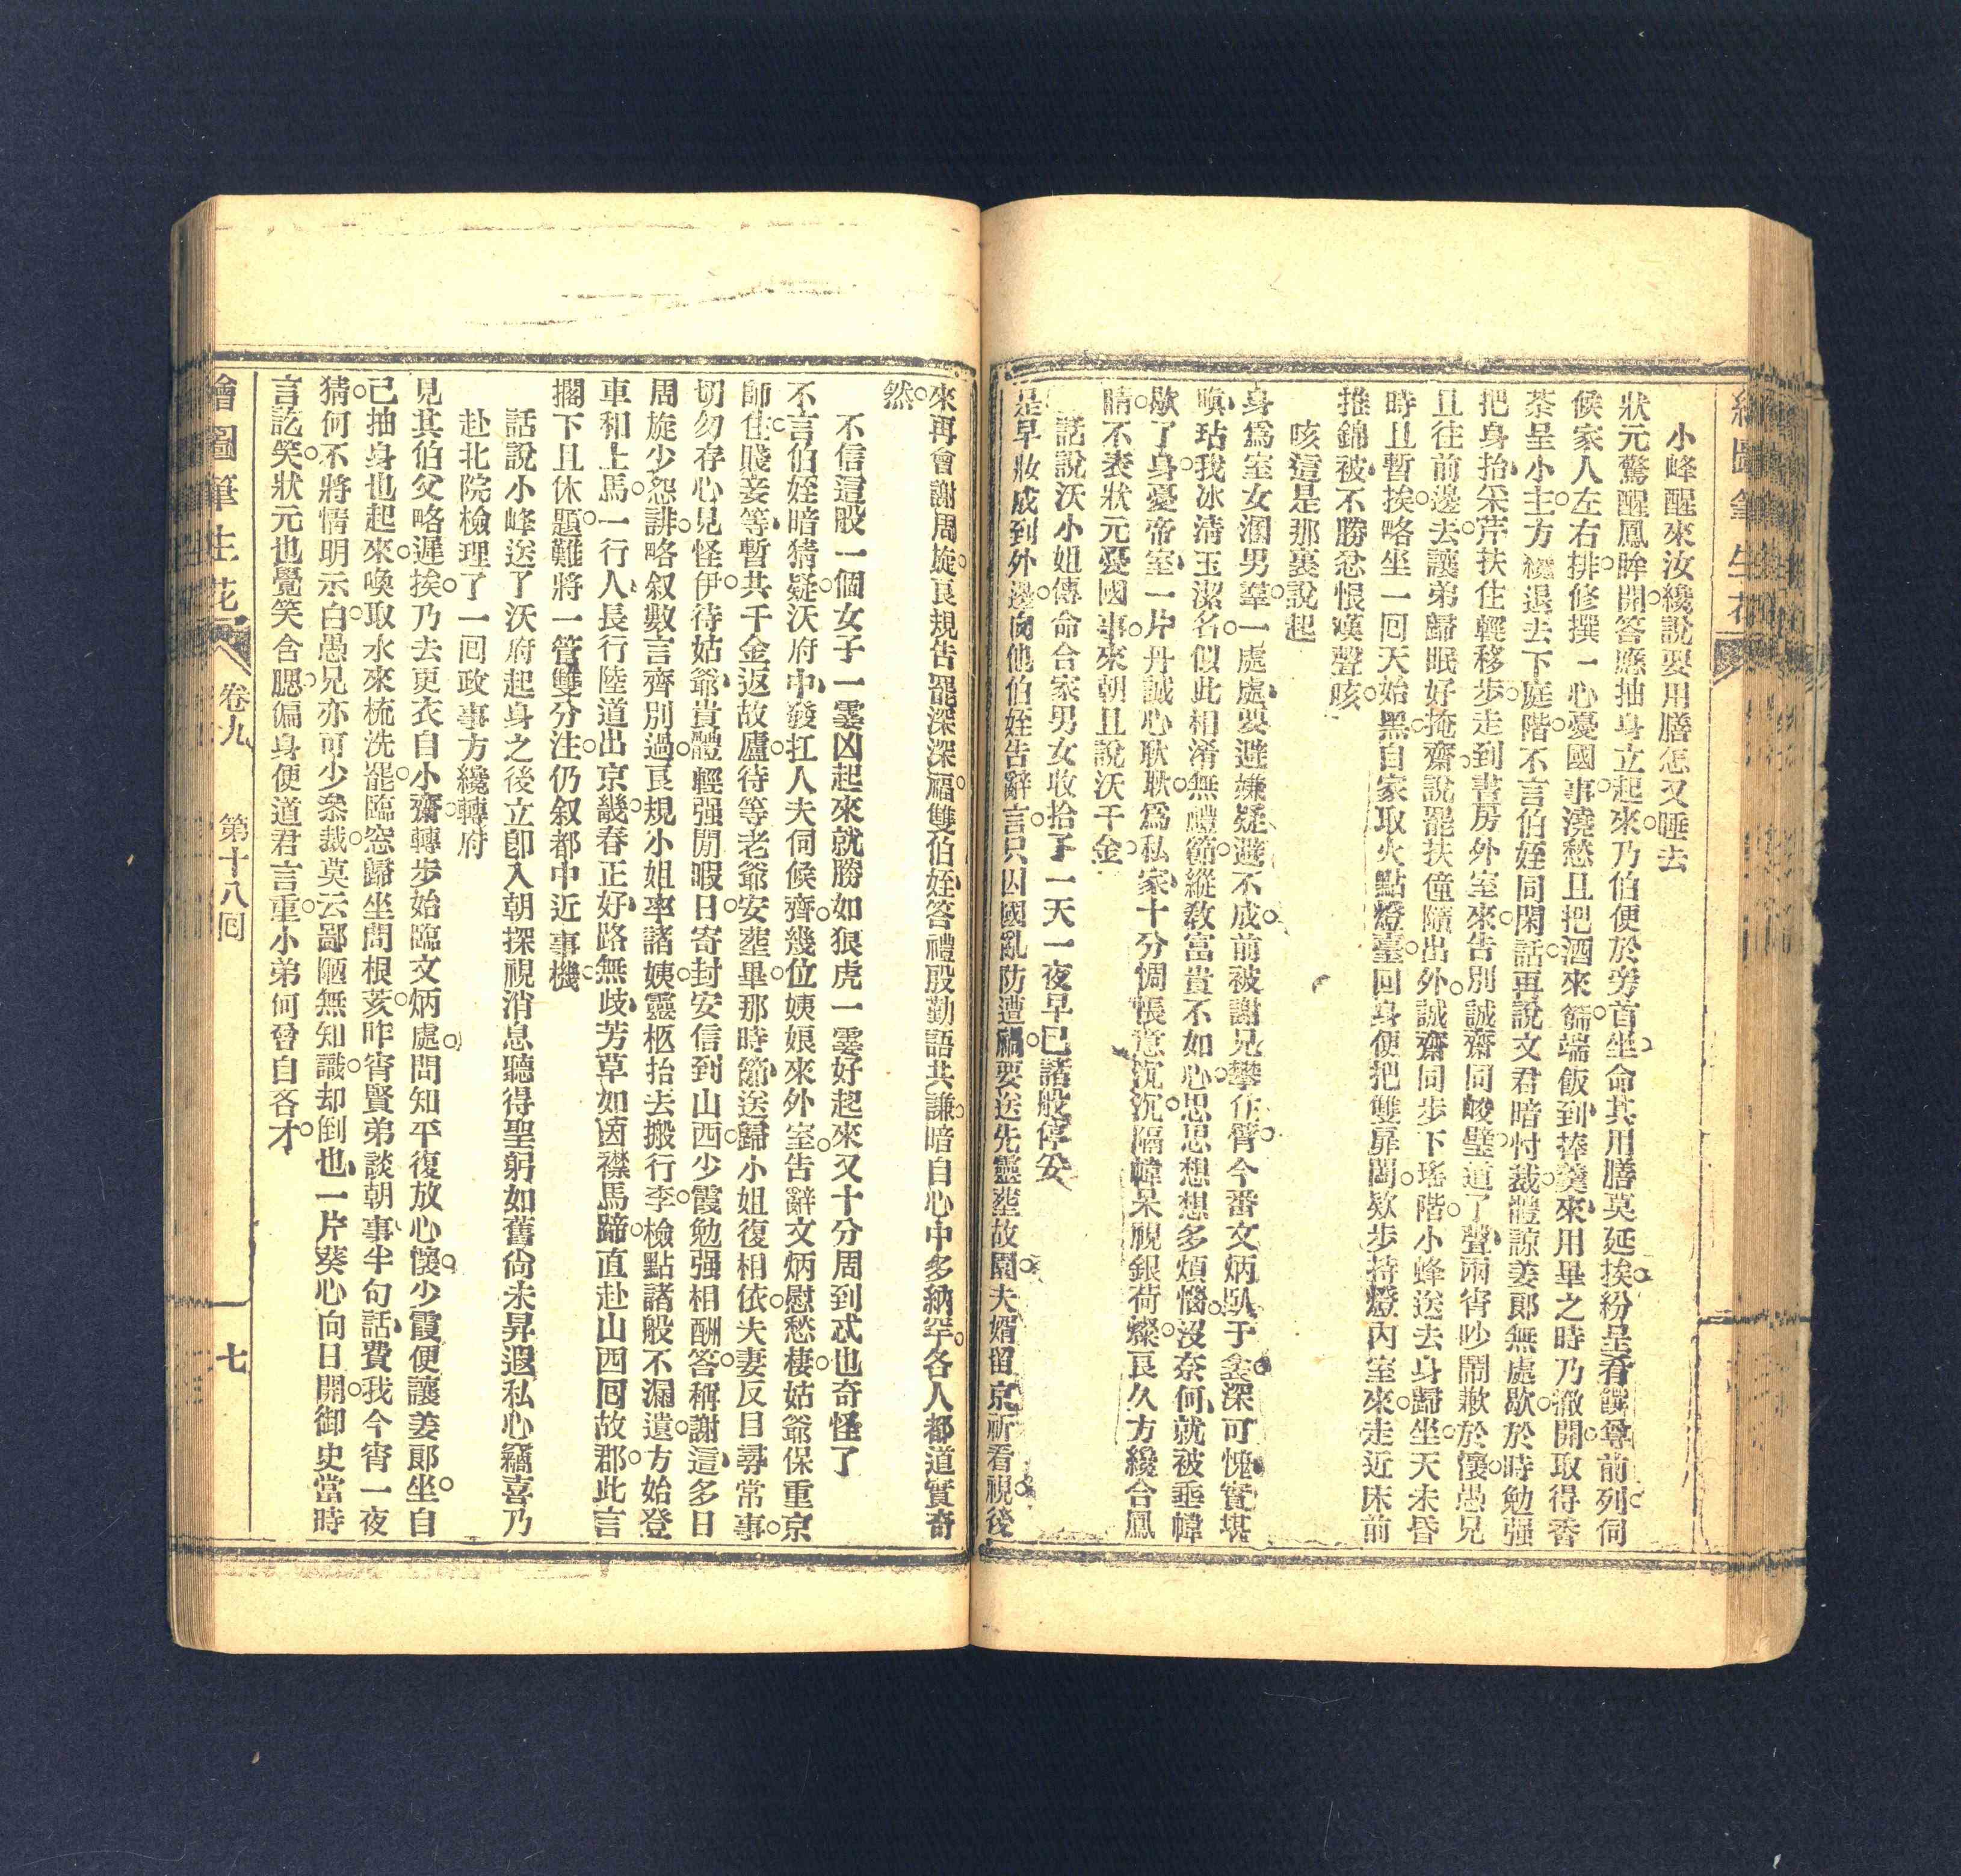 繪圖筆生花
小峰醒來汝纔說要用膳怎又睡去
狀元驚醒鳳眸開○答應抽身立起來○乃伯便於旁首坐、命其用膳莫延挨○紛呈看饌尊前列○伺
候家人左右排○修撰一心憂國事○澆愁且把酒來篩○端飯到、捧羹來○用畢之時乃撤開○取得香
茶呈小主○方纔退去下庭階○不言伯姪同閑話○再說文君暗忖裁○體諒姜郎無處歇○於時勉强
把身抬、采芹扶住輕移步○走到書房外室來○告別誠齋同峻璧○道了聲、兩宵吵鬧歉於懷○愚兄
且往前邊去○讓弟歸眠好掩齋○說罷扶僮隨出外○誠齋同步下瑤階○小峰送去身歸坐○天未昏
時且暫挨○略坐一回天始黑○自家取火點燈臺○回身便把雙扉闔○欵步持燈內室來○走近床前
推錦被○不勝忿恨嘆聲咳○
咳這是那裏說起
身爲室女溷男羣○一處處、要避嫌疑避不成○前被謝兄攀作臂○今番文炳臥于衾○深可愧、實堪
嗔、玷我冰淸玉潔名○似此相淆無禮節○縱敎富貴不如心○思思想想多煩惱○沒奈何、就被垂幃
歇了身○憂帝室、一片丹誠心耿耿○爲私家、十分惆悵意沉沉○隔幃呆視銀荷燦○良久方纔合鳳
睛○不表狀元憂國事○來朝且說沃千金○
話說沃小姐傳命合家男女收拾了一天一夜早已諸般停妥
是早妝成到外邊○向他伯姪告辭言○只因國亂防遭禍○要送先靈塟故園○夫婿留京祈看視○後
來再會謝周旋○良規告罷深深福○雙伯姪、答禮殷勤語共謙○暗自心中多納罕○各人都道實奇
然○
不信這般一個女子一霎凶起來就勝如狠虎一霎好起來又十分周到忒也奇怪了
不言伯姪暗猜疑○沃府中、發扛人夫伺候齊○幾位姨娘來外室○告辭文炳慰愁棲○姑爺保重京
師住○賤妾等、暫共千金返故廬○待等老爺安塟畢○那時節、送歸小姐復相依○夫妻反目尋常事○
切勿存心見怪伊○待姑爺、貴體輕强閒暇日○寄封安信到山西○少霞勉强相酬答○稱謝這、多日
周旋少怨誹○略叙數言齊別過○良規小姐率諸姨○靈柩抬去搬行李○檢點諸般不漏遺○方始登
車和上馬○一行人、長行陸道出京畿○春正好、路無歧、芳草如茵襯馬蹄○直赴山西囘故郡○此言
擱下且休題○難將一管雙分注○仍叙都中近事機○
話說小峰送了沃府起身之後立卽入朝探視消息聽得聖躬如舊尙未昇遐私心竊喜乃
赴北院檢理了一回政事方纔轉府
見其伯父略遲挨○乃去更衣自小齋○轉步始臨文炳處○問知平復放心懷○少霞便讓姜郎坐○自
己抽身也起來○喚取水來梳洗罷○臨窓歸坐問根荄○昨宵賢弟談朝事、半句話、費我今宵一夜
猜○何不將情明示白○愚兄亦可少叅裁○莫云鄙陋無知識○却倒也、一片葵心向日開○御史當時
言訖笑○狀元也覺笑含腮○偏身便道君言重○小弟何曾自吝才○
繪圖筆生花
卷九
第十八回
七